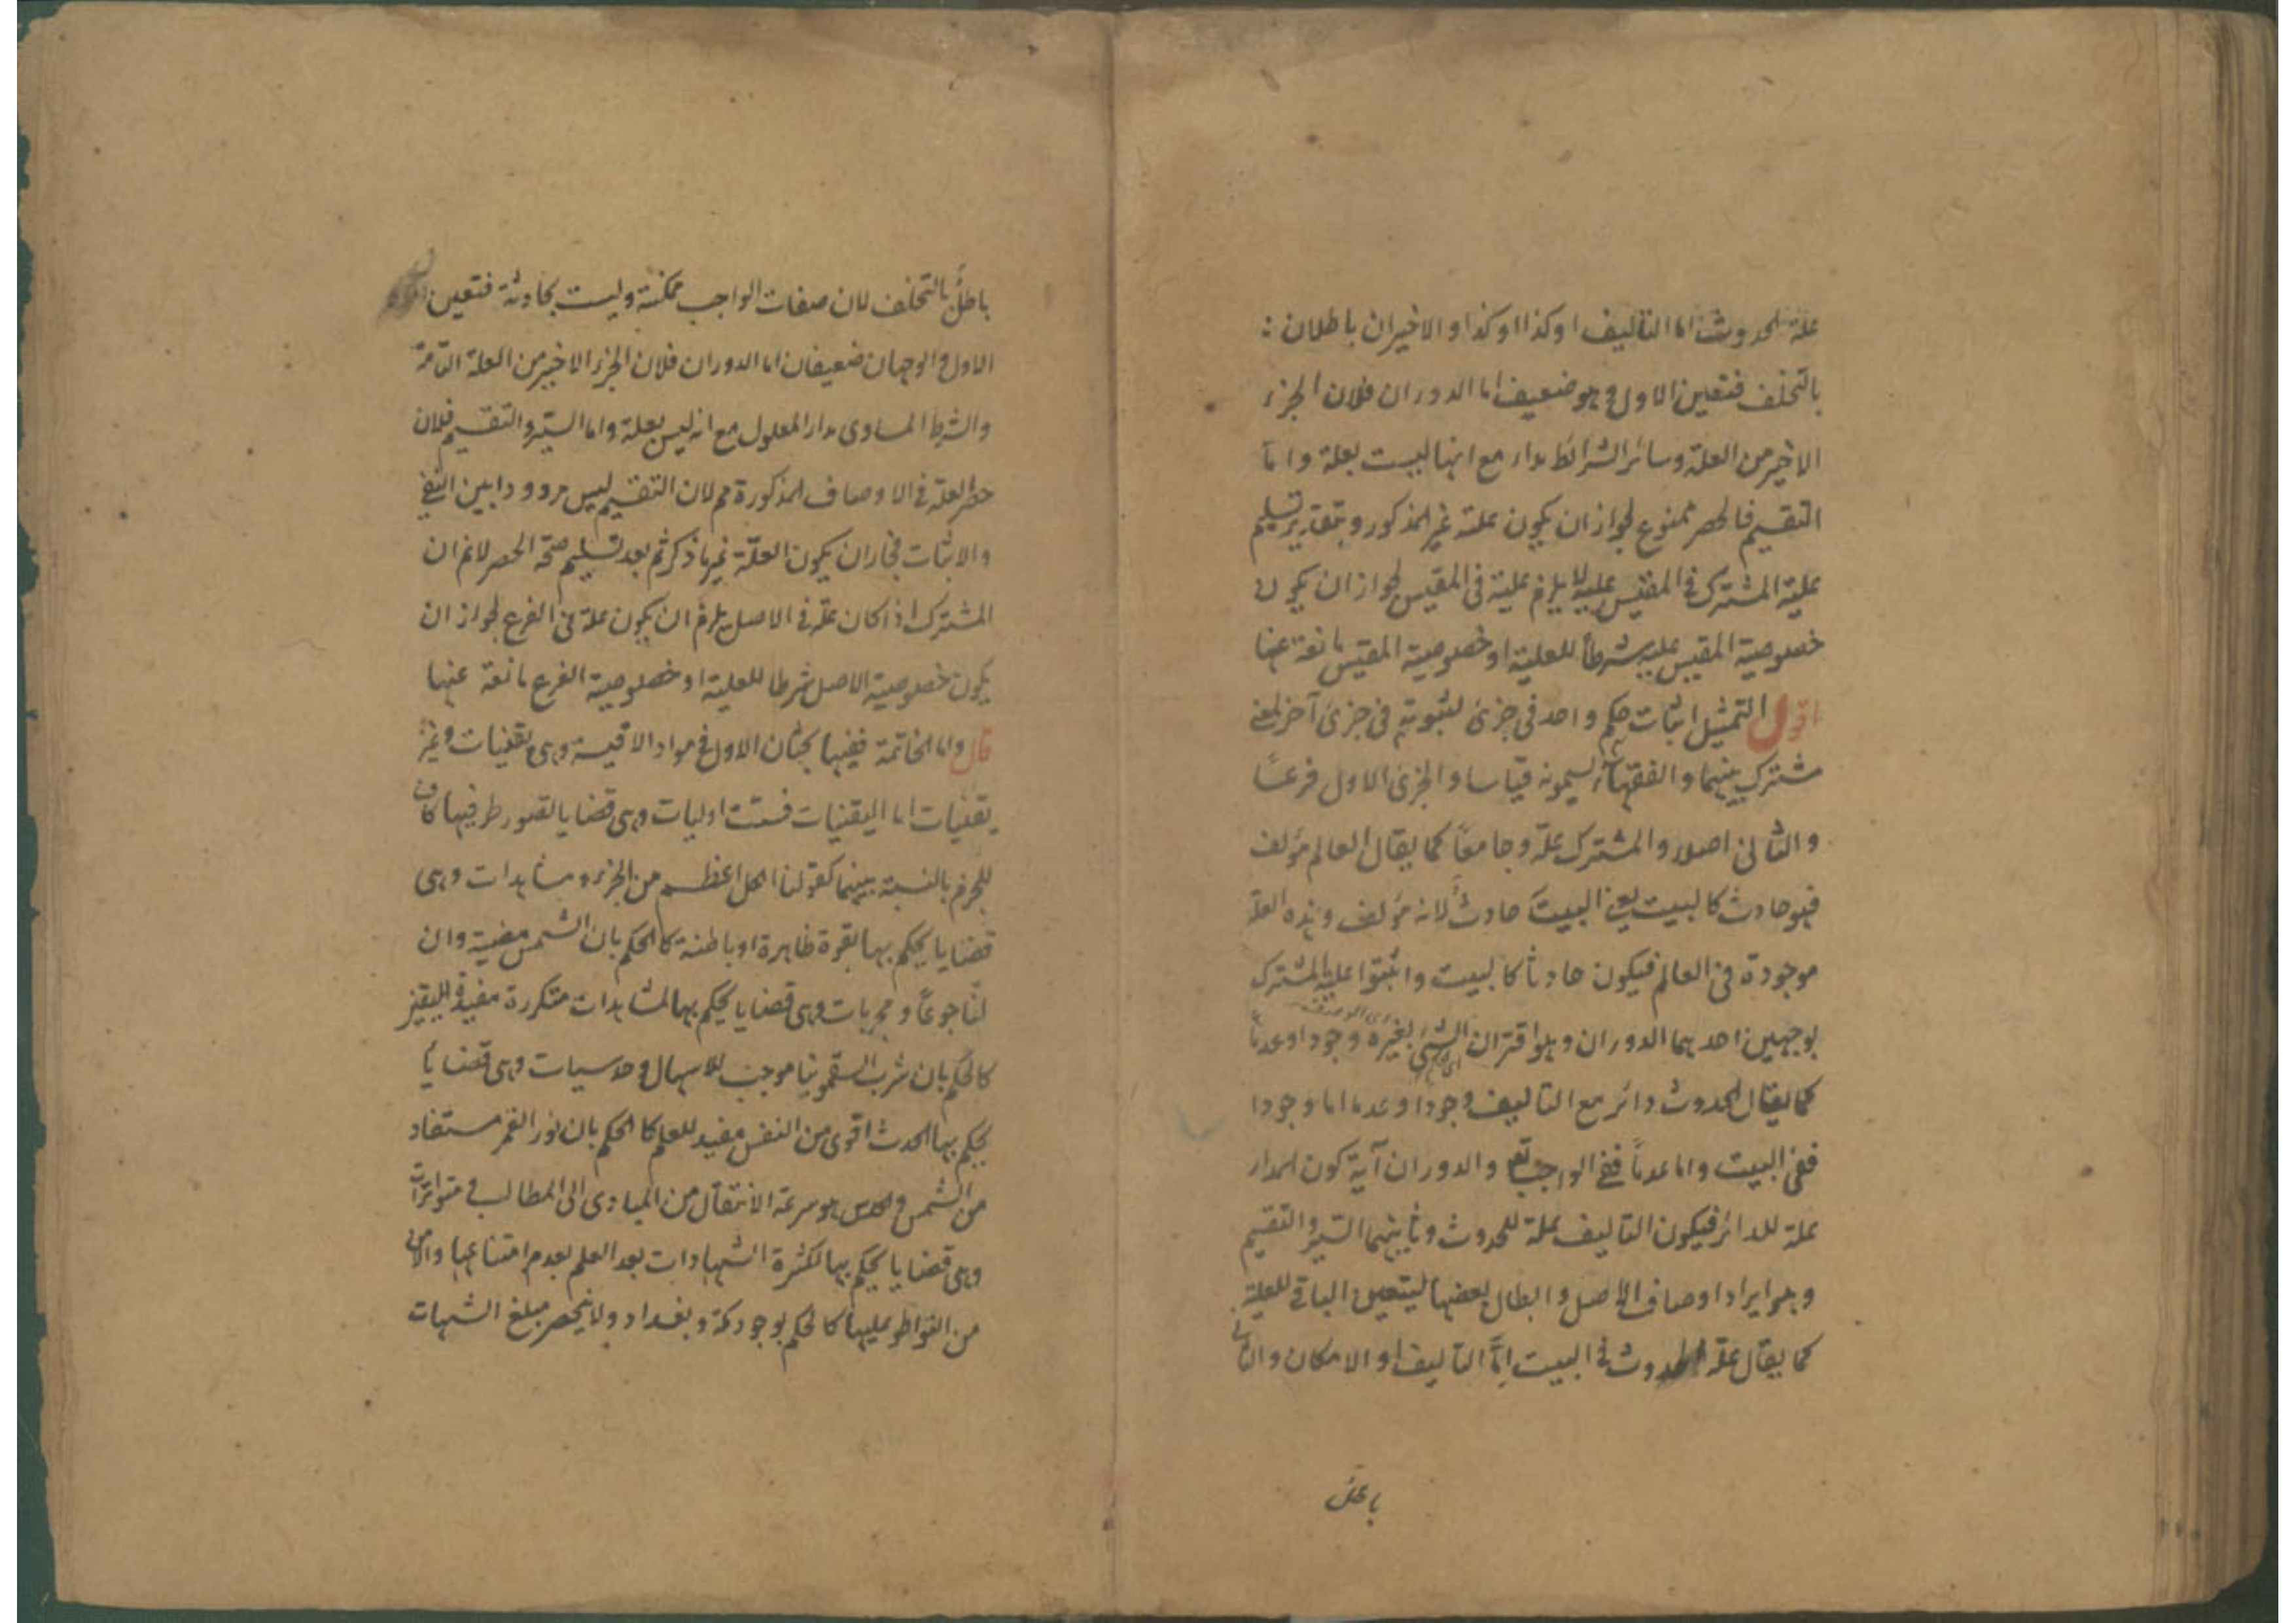 علة الحدوث اما التاليف او كذا او كذا و الاخيران باطلان
بالتخلف فتعين الاول وهو ضعيف اما الدوران فلان الجزء
الاخير من العلة وسائر الشرائط مدار مع انها ليست بعلة واما
التقسيم فالحصر ممنوع لجواز ان يكون علة غير المذكور وبتقدير تسليم
علية المشترك فى المقيس عليه لا يلزم علية فى المقيس لجواز ان يكون
خصوصية المقيس عليه شرطا للعلية او خصوصية المقيس مانعة عنها
اقول التمثيل اثبات حكم واحد فى جزئ لثبوته فى جزئ آخر لمعنى
مشترك بينهما والفقهاء يسمونه قياسا والجزئ الاول فرعًا
والثانى اصلا والمشترك علة وجامعًا كما يقال العالم مؤلف
فهو حادث كالبيت يعنى البيت حادث لانه مؤلف وهذه العلة
موجودة فى العالم فيكون حادثا كالبيت واثبتوا علية المشترك
بوجهين احدهما الدوران وهو اقتران الشئ بغيره وجودا وعدمًا
كما يقال الحدوث دائر مع التاليف وجودا وعدما اما وجودا
ففى البيت واما عدمًا ففى الواجب تع والدوران آية كون المدار
علة للدائر فيكون التاليف علة للحدوث وثانيهما السبر والتقسيم
وهو ايراد اوصاف الاصل وابطال بعضها ليتعين الباقى للعلية
كما يقال علة الحدوث فى البيت امّا التاليف او الامكان والثانى
باطل
باطل بالتخلف لان صفات الواجب ممكنة وليست بحادثة فتعين
الاول والوجهان ضعيفان اما الدوران فلان الجزء الاخير من العلة التامة
والشرط المساوى مدار المعلول مع انه ليس بعلة واما السبر والتقسيم فلان
حصر العلة فى الاوصاف المذكورة مم لان التقسيم ليس مرددا بين النفى
والاثبات فجاز ان يكون العلة غير ما ذكر ثم بعد تسليم صحة الحصر لانم ان
المشترك اذا كان علة فى الاصل يلزم ان يكون علة فى الفرع لجواز ان
يكون خصوصية الاصل شرطا للعلية او خصوصية الفرع مانعة عنها
قال واما الخاتمة ففيها بحثان الاول فى مواد الاقيسة وهى يقينيات وغير
يقينيات اما اليقينيات فست اوليات وهى قضايا تصور طرفيها كاف
للجزم بالنسبة بينهما كقولنا الكل اعظم من الجزء ومشاهدات وهى
قضايا يحكم بها بقوة ظاهرة او باطنة كالحكم بان الشمس مضيئة وان
لنا جوعًا ومجربات وهى قضايا يحكم بها لمشاهدات متكررة مفيدة لليقين
كالحكم بان شرب السقمونيا موجب للاسهال وحدسيات وهى قضايا
يحكم بها لحدث اقوى من النفس مفيد للعلم كالحكم بان نور القمر مستفاد
من الشمس والحدس هو سرعة الانتقال من المبادى الى المطالب ومتواترات
وهى قضايا يحكم بها لكثرة الشهادات بعد العلم بعدم امتناعها والامن
من التواطؤ عليها كالحكم بوجود مكة وبغداد ولا ينحصر مبلغ الشهات